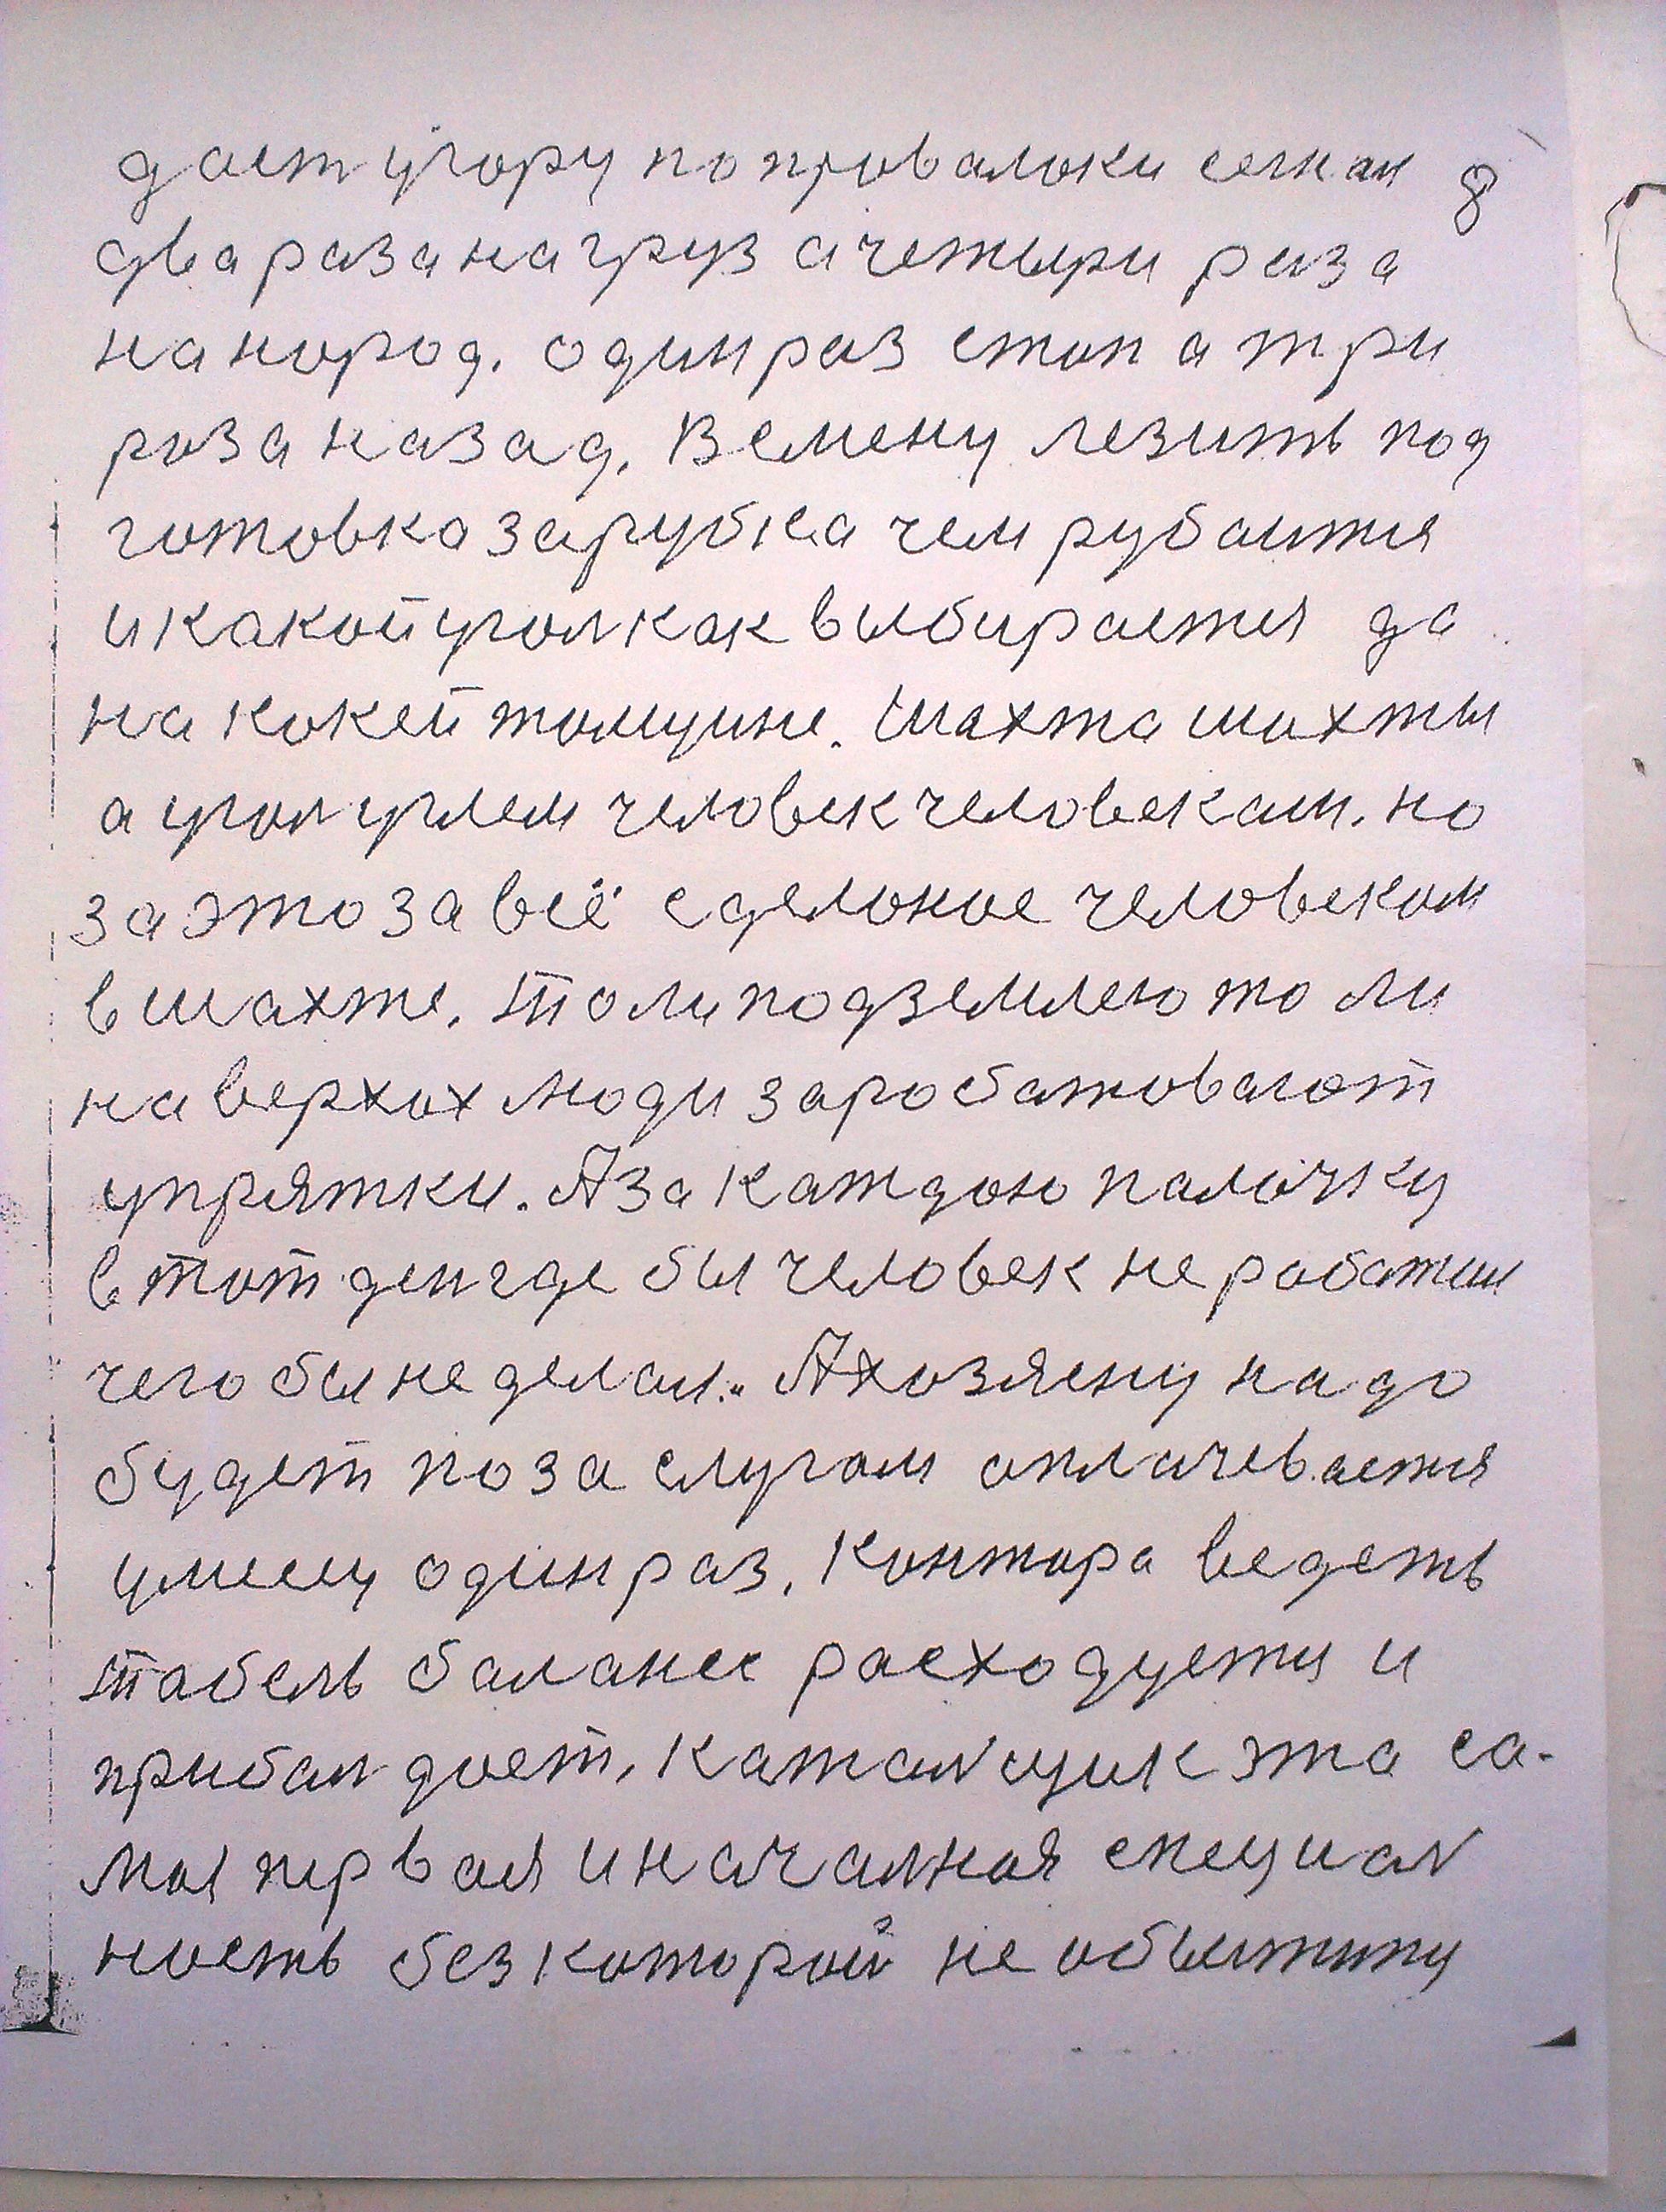 дает угору по провалоки сегнал 8
два раза на груз а четыри раза
на народ. один раз стоп а три
раза назад. В смену лезить под
готовка зарубка чем рубаится
и какой угол как выбирается да
на кокей толщине. Шахта шахты
а угол углем человек человекам. но
за это за всё сделоное человеком
в шахте. Толи подземлею то ли
на верхох люди заробатовают
упряжки. А за каждою палочку
в тот ден где бы человек не работал
чего бы не делал.. А хозяену надо
будет по заслугам оплачевается
умееу один раз. Контора ведеть
табель баланес расходуется и
прибал дает. Каталщик эта са-
мая первая и началная специал
ность без которой не обыттипу